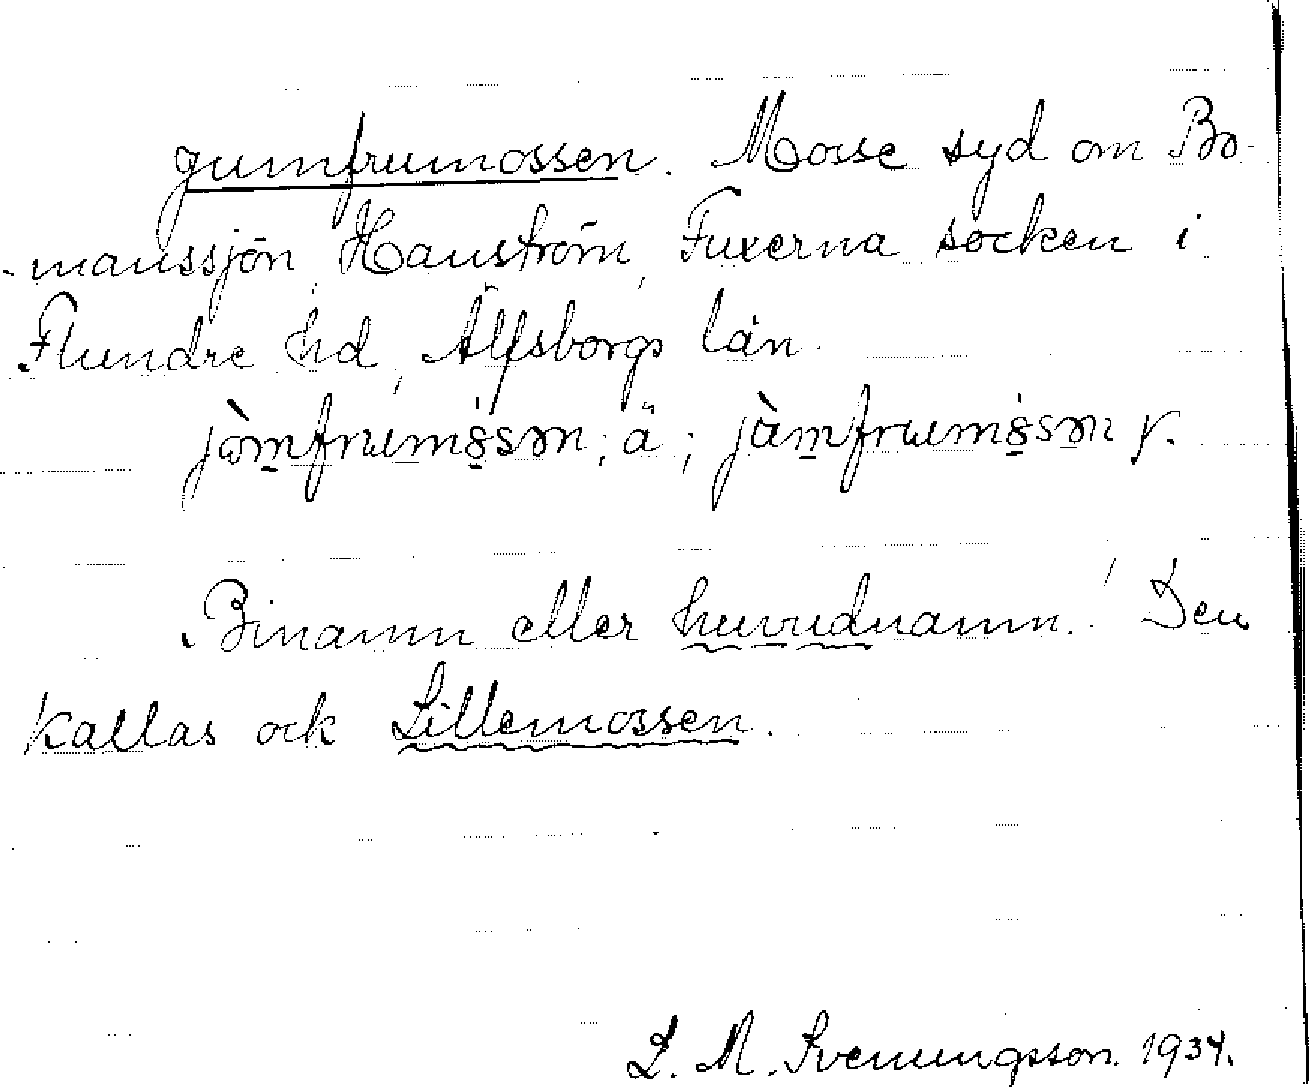 gumfrumossen. Mosse syd om Bo-
-manssjön, Hanström, Fuxerna socken i
Flundre hd, Älfsborgs län.
Binamn eller huvudnamn! Den
kallas ock Lillemossen.
L. M. Svenungsson. 1934.